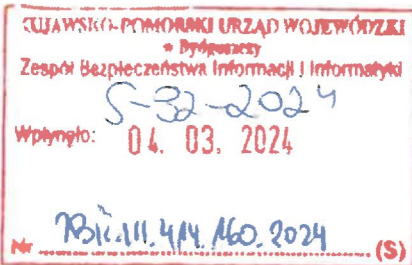 KUJAWSKO-POMORSKI URZĄD WOJEWÓDZKI
w Bydgoszczy
Zespół Bezpieczeństwa Informacji i Informatyki
S-32-2024
Wpłynęło: 04. 03. 2024
Nr ZBiI.III.414.160.2024 (S)